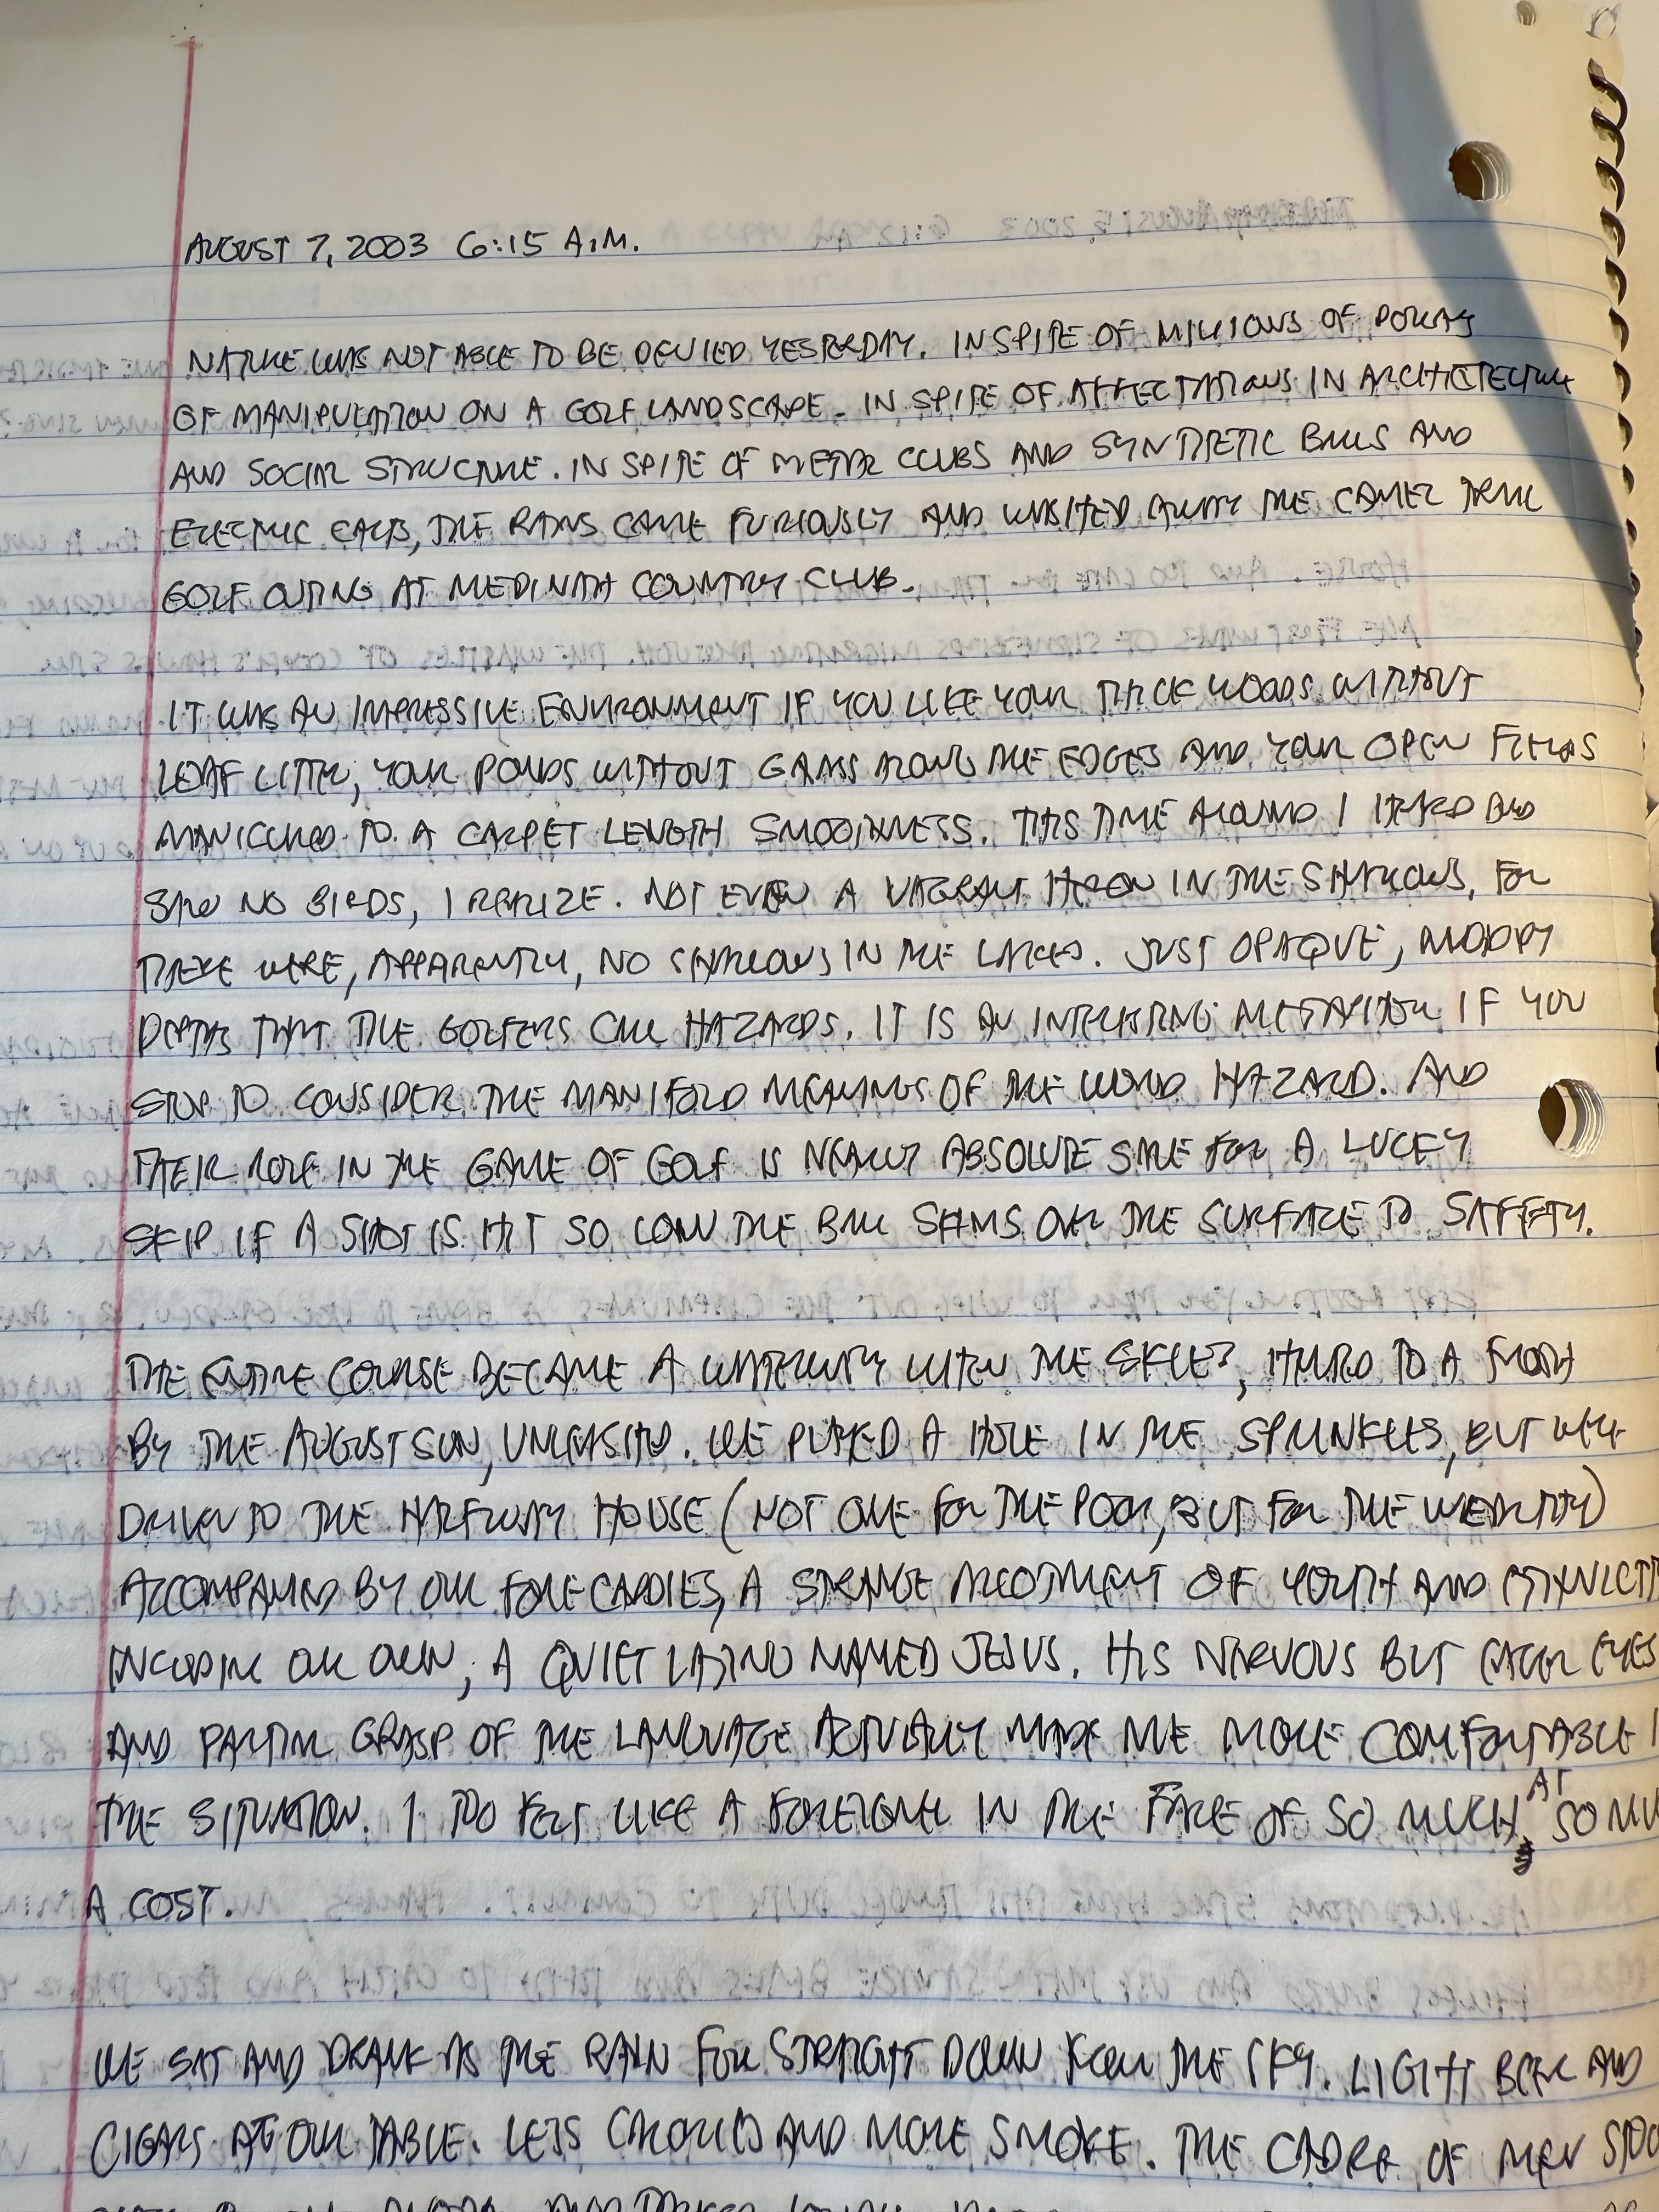 AUGUST 7, 2003 6:15 A.M.
NATURE WAS NOT ABLE TO BE DENIED YESTERDAY. IN SPITE OF MILLIONS OF DOLLARS
OF MANIPULATION ON A GOLF LANDSCAPE. IN SPITE OF AFFECTATIONS IN ARCHITECTURE
AND SOCIAL STRUCTURE. IN SPITE OF METAL CLUBS AND SYNTHETIC BALLS AND
ELECTRIC CARTS, THE RAINS CAME FURIOUSLY AND WASHED AWAY THE CAMEL TRAIL
GOLF OUTING AT MEDINAH COUNTRY CLUB.
IT WAS AN IMPRESSIVE ENVIRONMENT IF YOU LIKE YOUR THICK WOODS WITHOUT
LEAF LITTER, YOUR PONDS WITHOUT GRASS ALONG THE EDGES AND YOUR OPEN FIELDS
MANICURED TO A CARPET LENGTH SMOOTHNESS. THIS TIME AROUND I HEARD AND
SAW NO BIRDS, I REALIZE. NOT EVEN A VAGRANT HERON IN THE SHALLOWS, FOR
THERE WERE, APPARENTLY, NO SHALLOWS IN THE LAKES. JUST OPAQUE, MUDDY
DEPTHS THAT THE GOLFERS CALL HAZARDS. IT IS AN INTERESTING METAPHOR IF YOU
STOP TO CONSIDER THE MANIFOLD MEANINGS OF THE WORD HAZARD. AND
THEIR ROLE IN THE GAME OF GOLF IS NEARLY ABSOLUTE SAVE FOR A LUCKY
SKIP IF A SHOT IS HIT SO LOW THE BALL SKIMS OVER THE SURFACE TO SAFETY.
THE ENTIRE COURSE BECAME A WATERWAY WHEN THE SKIES, HEATED TO A FROTH
BY THE AUGUST SUN, UNLEASHED. WE PLAYED A HOLE IN THE SPRINKLES, BUT WERE
DRIVEN TO THE HALFWAY HOUSE (NOT ONE FOR THE POOR, BUT FOR THE WEALTHY)
ACCOMPANIED BY OUR FORECADDIES, A STRANGE ASSORTMENT OF YOUTH AND ETHNICITY
INCLUDING OUR OWN, A QUIET LATINO NAMED JESUS. HIS NERVOUS BUT EAGER EYES
AND PARTIAL GRASP OF THE LANGUAGE ACTUALLY MADE ME MORE COMFORTABLE I
THE SITUATION. I TOO FELT LIKE A FOREIGNER IN THE FACE OF SO MUCH, AT SO MU
A COST.
WE SAT AND DRANK AS THE RAIN FELL STRAIGHT DOWN FROM THE SKY. LIGHT BEER AND
CIGARS AT OUR TABLE. LESS AND MORE SMOKE. THE CADRE OF MEN STOO